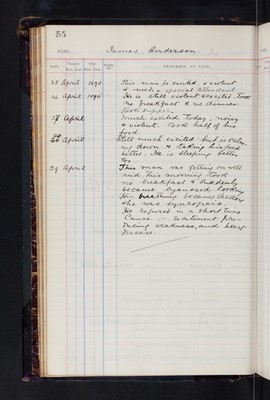 55
NAME, James Anderson.
DATE. PROGRESS OF CASE.
25 April 1890 This man is excited & violent
& needs a special attendant
26 April 1890 He is still violent & excited. Took
no breakfast & no dinner.
Took supper.
27 April Much excited today, noisy
& violent. Took half of his
food.
28 April Still much excited but is calm-
ing down & taking his food
better. He is sleeping better
too.
29 April This man was getting on well
and this morning took
no breakfast & suddenly
became cyanosed looking
His breathing became shallow
& he was syncopaic.
He expired in a short time
Cause :- Excitement pro-
ducing weakness, and heart
disease.